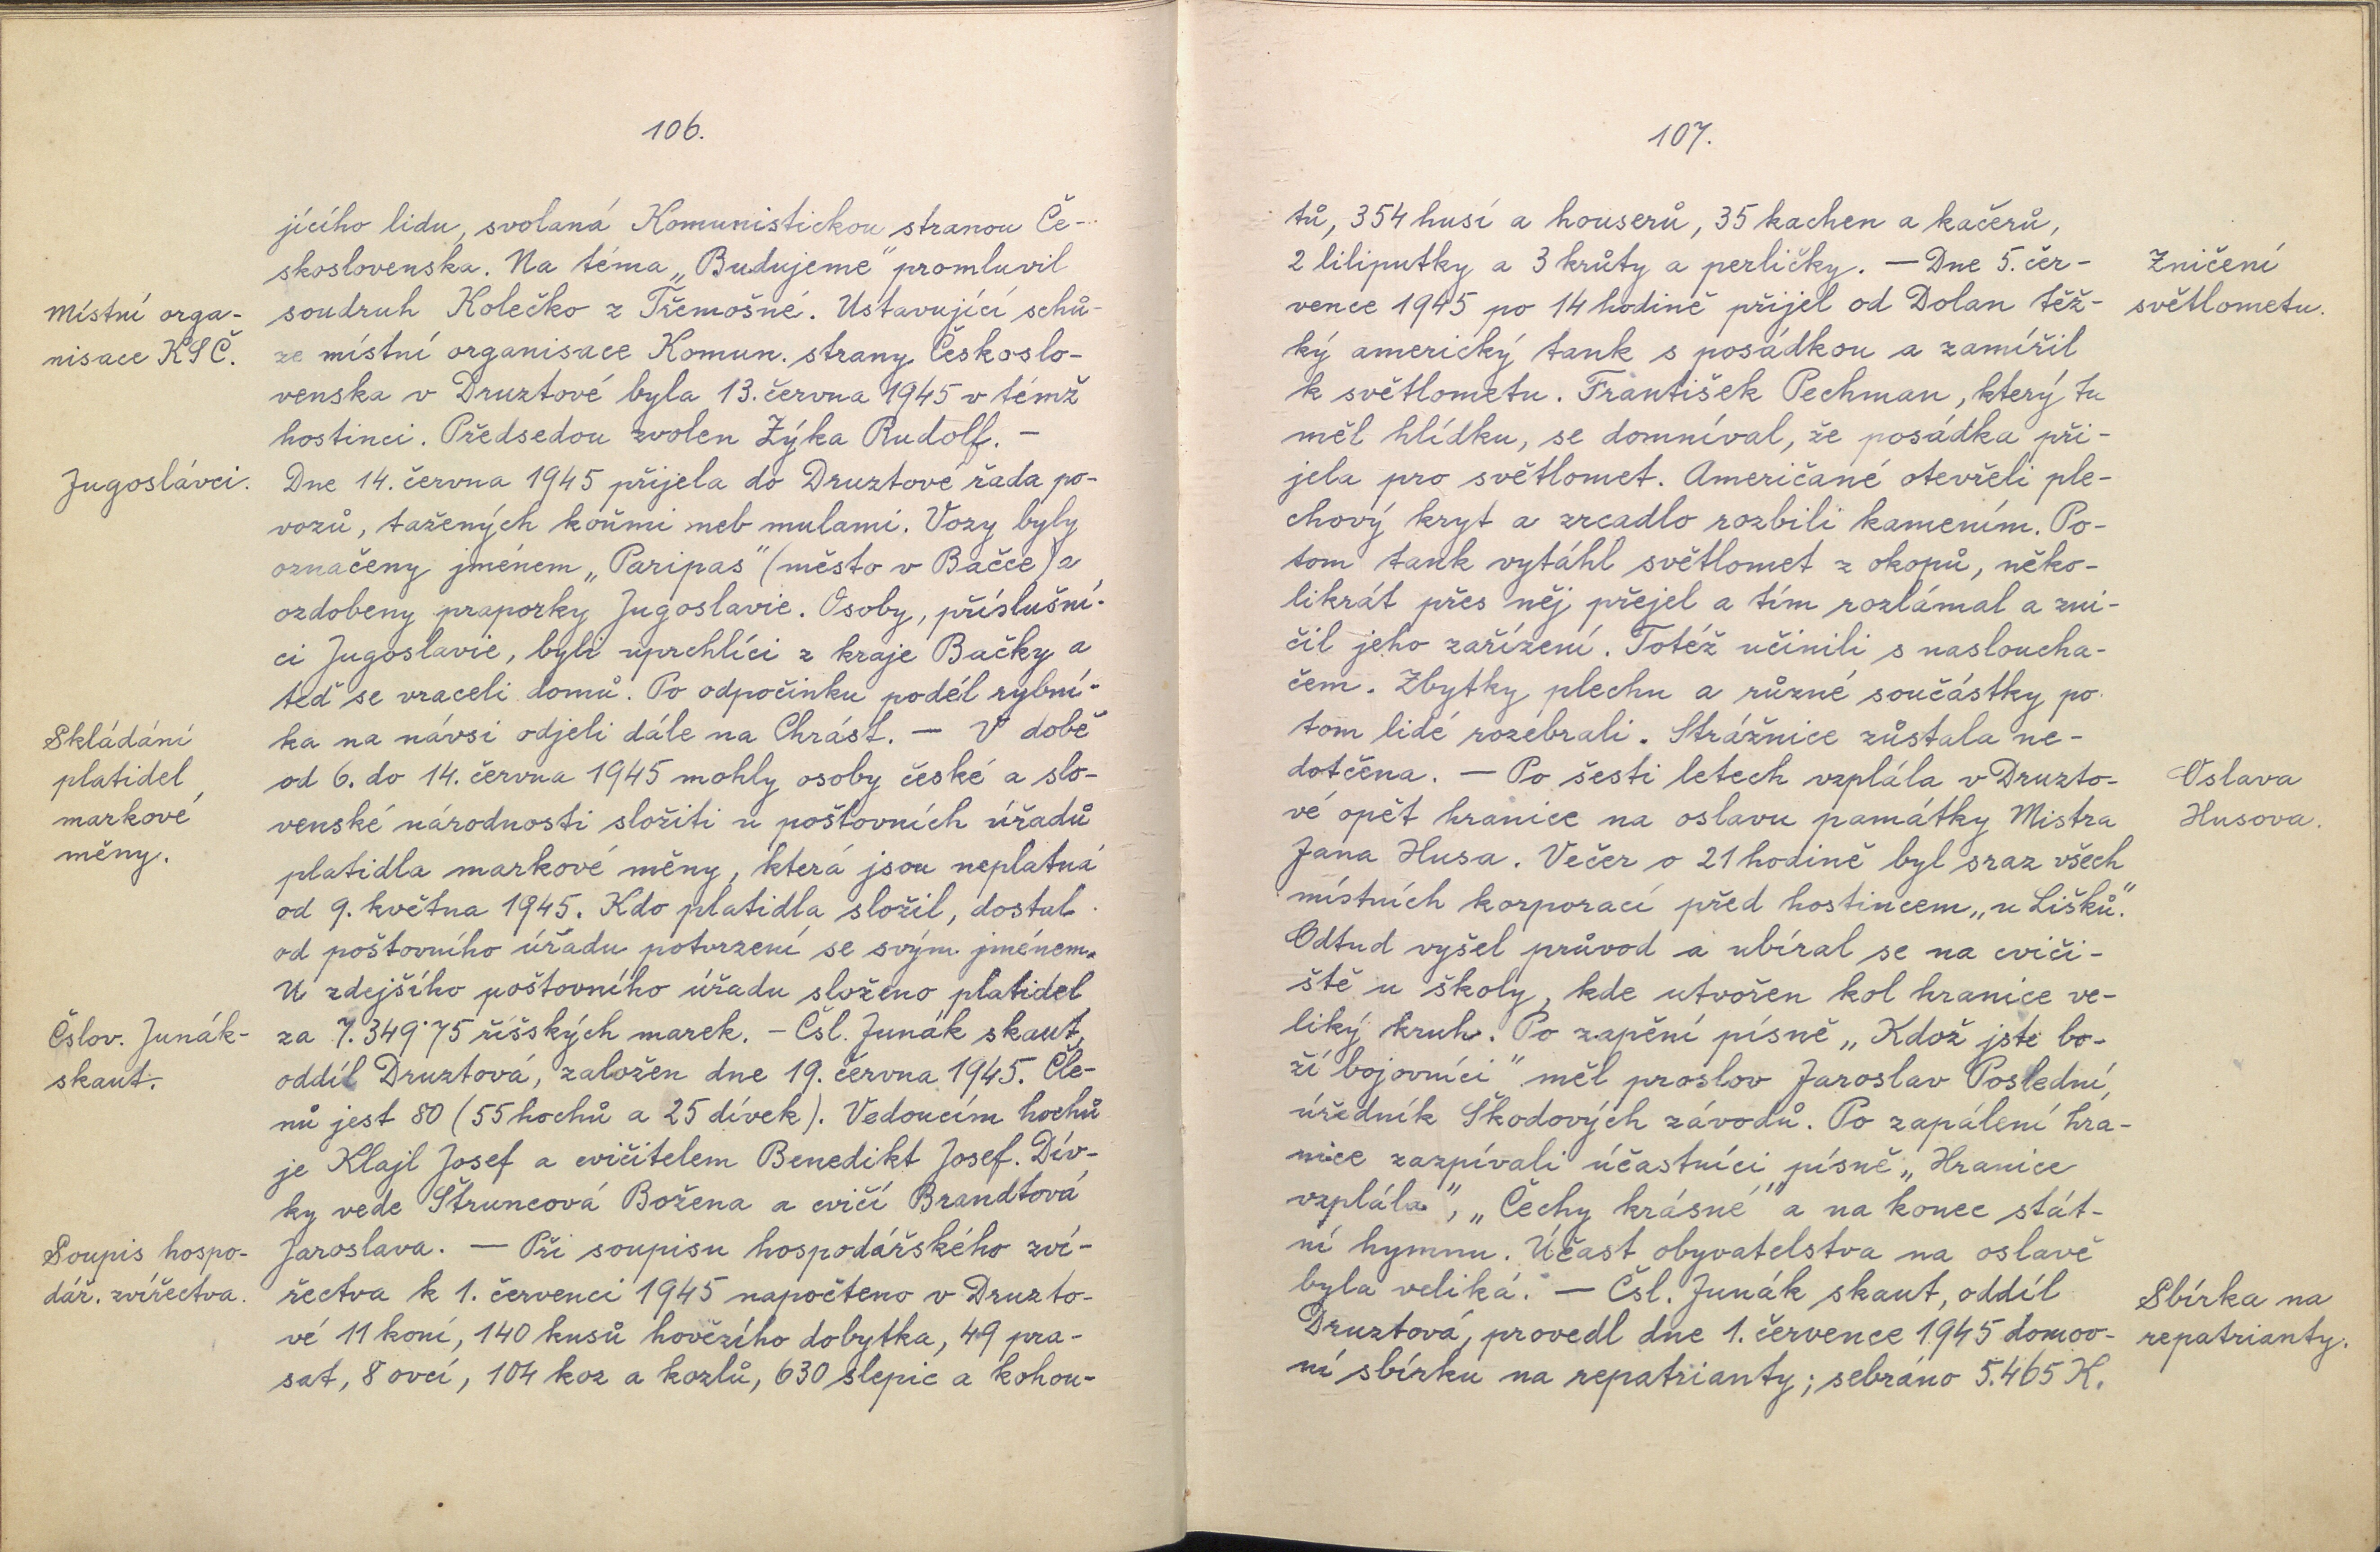 106.
jícího lidu, svolaná Komunistickou stranou Če-
skoslovenska. Na téma „Budujeme" promluvil
Místní orga-
nisace KSČ.
soudruh Kolečko z Třemošné. Ustavující schů-
ze místní organisace Komun. strany Českoslo-
venska v Druztové byla 13. června 1945 v témž
hostinci. Předsedou zvolen Zýka Rudolf. —
Jugoslávci.
Dne 14. června 1945 přijela do Druztové řada po-
vozů, tažených koňmi neb mulami. Vozy byly
označeny jménem „Paripas" (město v Bačce) a
ozdobeny praporky Jugoslavie. Osoby, příslušní-
ci Jugoslavie, byli uprchlíci z kraje Bačky a
teď se vraceli domů. Po odpočinku podél rybní-
Skládání
platidel
markové
měny.
ka na návsi odjeli dále na Chrást. — V době
od 6. do 14. června 1945 mohly osoby české a slo-
venské národnosti složiti u poštovních úřadů
platidla markové měny, která jsou neplatná
od 9. května 1945. Kdo platidla složil, dostal
od poštovního úřadu potvrzení se svým jménem.
U zdejšího poštovního úřadu složeno platidel
Čslov. Junák-
skaut.
za 7.349·75 říšských marek. — Čsl. Junák skaut,
oddíl Druztová, založen dne 19. června 1945. Čle-
nů jest 80 (55 hochů a 25 dívek). Vedoucím hochů
je Klajl Josef a cvičitelem Benedikt Josef. Dív-
ky vede Štruncová Božena a cvičí Brandtová
Soupis hospo-
dář. zvířectva.
Jaroslava. — Při soupisu hospodářského zví-
řectva k 1. červenci 1945 napočteno v Druzto-
vé 11 koní, 140 kusů hovězího dobytka, 49 pra-
sat, 8 ovcí, 104 koz a kozlů, 630 slepic a kohou-
107.
tů, 354 husí a houserů, 35 kachen a kačerů,
2 liliputky a 3 krůty a perličky. — Dne 5. čer-
Zničení
světlometu.
vence 1945 po 14 hodině přijel od Dolan těž-
ký americký tank s posádkou a zamířil
k světlometu. František Pechman, který tu
měl hlídku, se domníval, že posádka při-
jela pro světlomet. Američané otevřeli ple-
chový kryt a zrcadlo rozbili kamením. Po-
tom tank vytáhl světlomet z okopů, něko-
likrát přes něj přejel a tím rozlámal a zni-
čil jeho zařízení. Totéž učinili s nasloucha-
čem. Zbytky plechu a různé součástky po-
tom lidé rozebrali. Strážnice zůstala ne-
dotčena. — Po šesti letech vzplála v Druzto-
Oslava
Husova.
vé opět hranice na oslavu památky Mistra
Jana Husa. Večer o 21 hodině byl sraz všech
místních korporací před hostincem „u Lišků".
Odtud vyšel průvod a ubíral se na cviči-
ště u školy, kde utvořen kol hranice ve-
liký kruh. Po zapění písně „Kdož jste bo-
ží bojovníci" měl proslov Jaroslav Poslední,
úředník Škodových závodů. Po zapálení hra-
nice zazpívali účastníci písně „Hranice
vzplála", „Čechy krásné" a na konec stát-
ní hymnu. Účast obyvatelstva na oslavě
byla veliká. — Čsl. Junák skaut, oddíl
Sbírka na
repatrianty.
Druztová, provedl dne 1. července 1945 domov-
ní sbírku na repatrianty; sebráno 5.465 K.